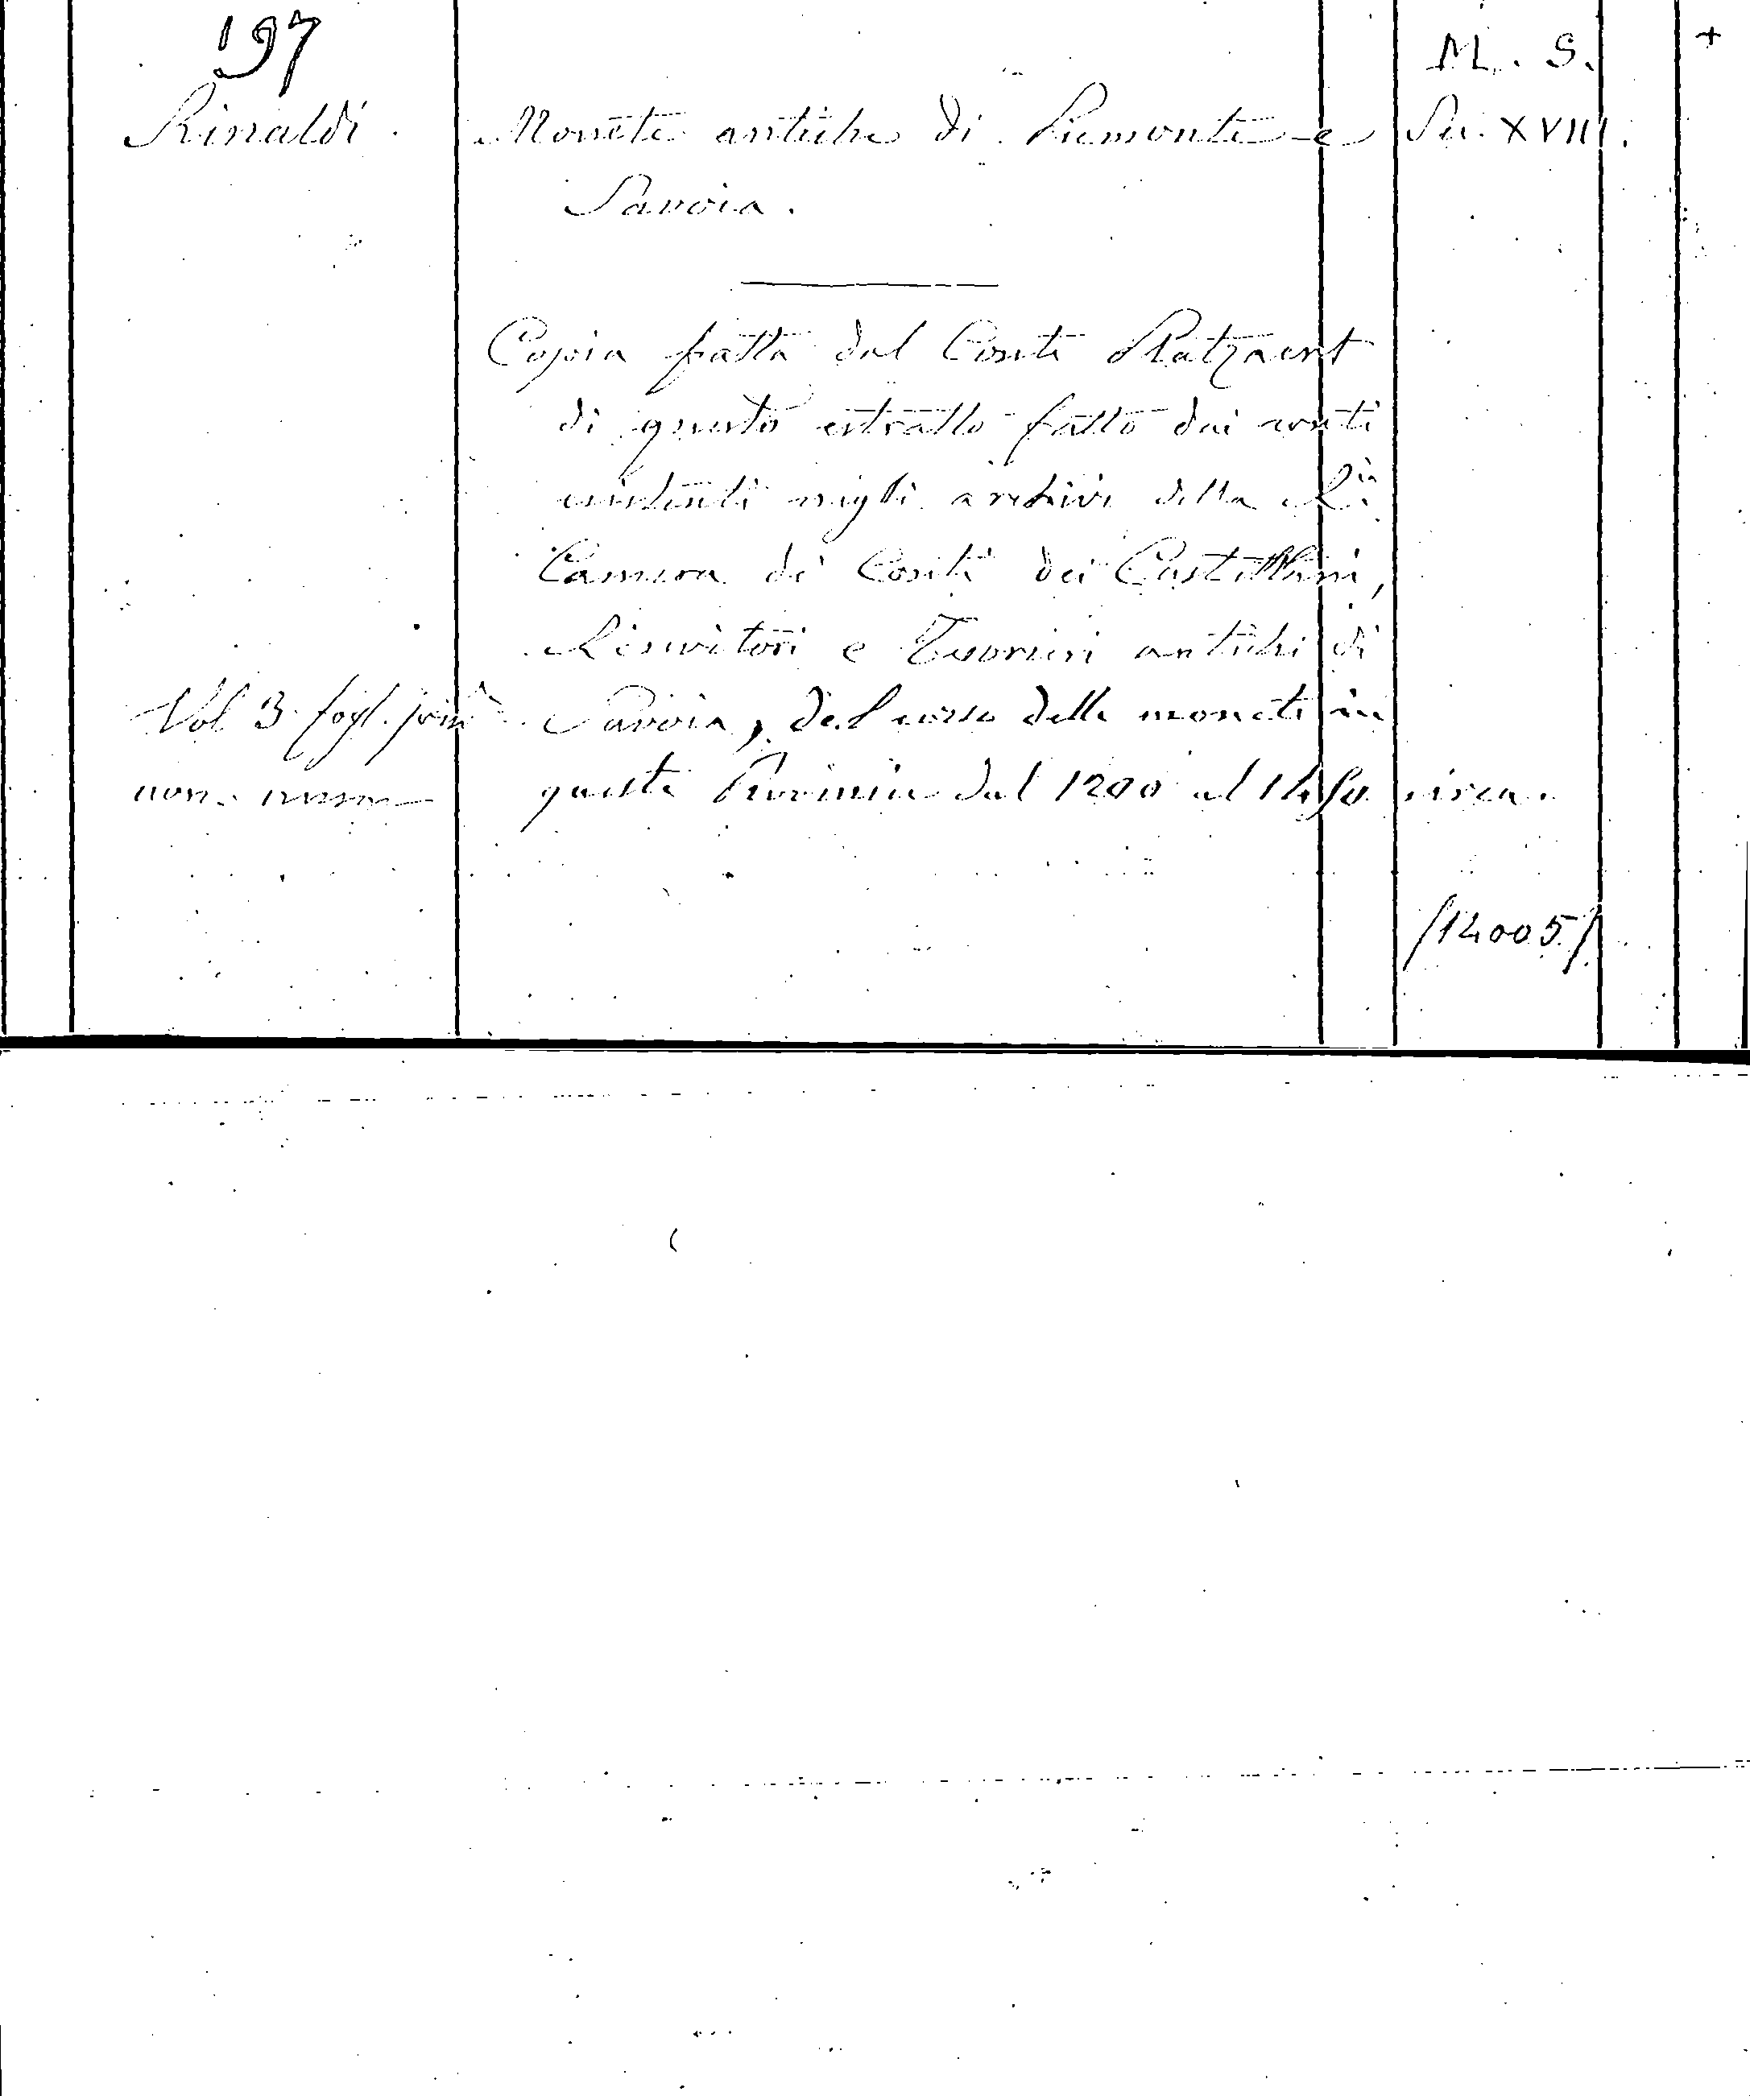 197
M. S. +
Rinaldi. Monete antiche di Piemonte e Sec. XVIII.
Savoia.
Copia fatta dal Conte
di questo estratto fatto dai conti
esistenti negli archivi della Ra.
Camera di Conti dei Castellani,
Ricevitori e Tesorieri antichi di
Vol 3. fogl. prin Savoia, del corso delle monete in
non num queste Provincie dal 1200 al circa.
/14005/